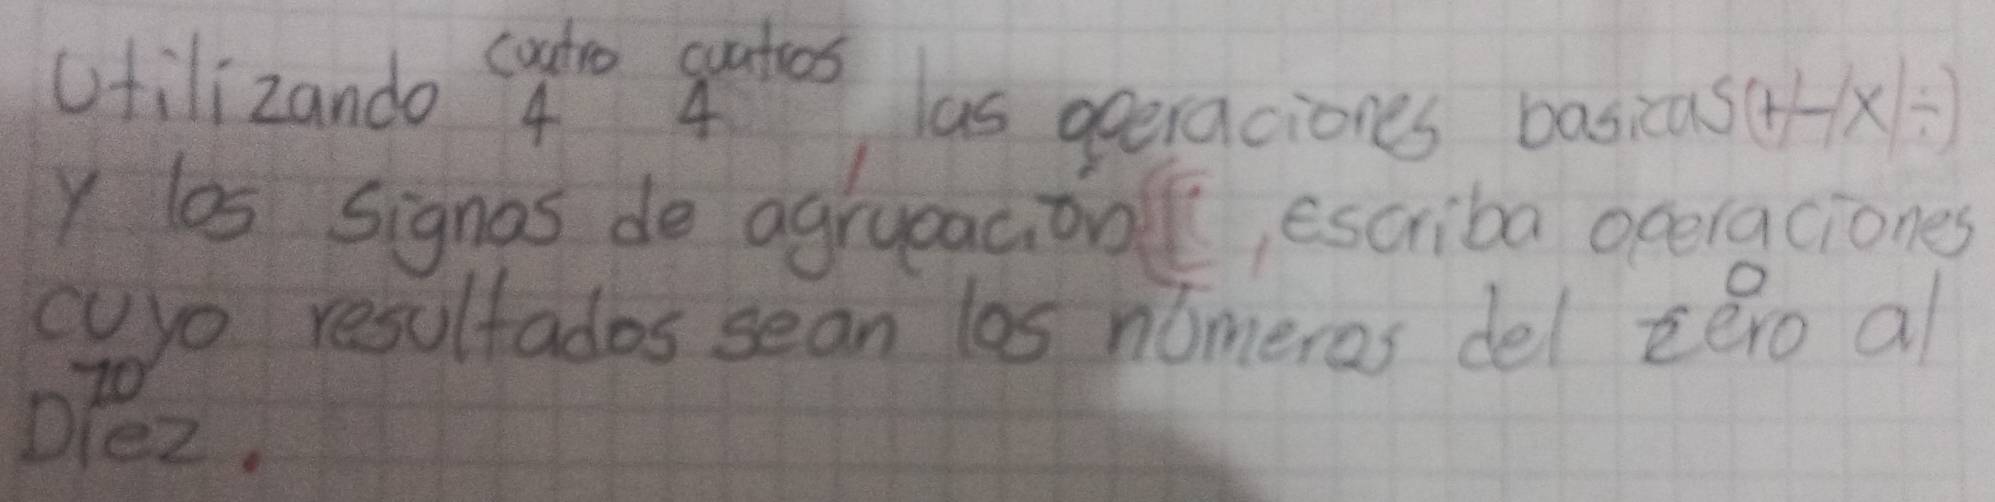 Utilizando cuatro 4 cuatros 4, las operaciones basicas (+/-/x/÷)
y los signos de agrupación, escriba operaciones
cuyo resultados sean los números del zero 0 al
Diez 10.